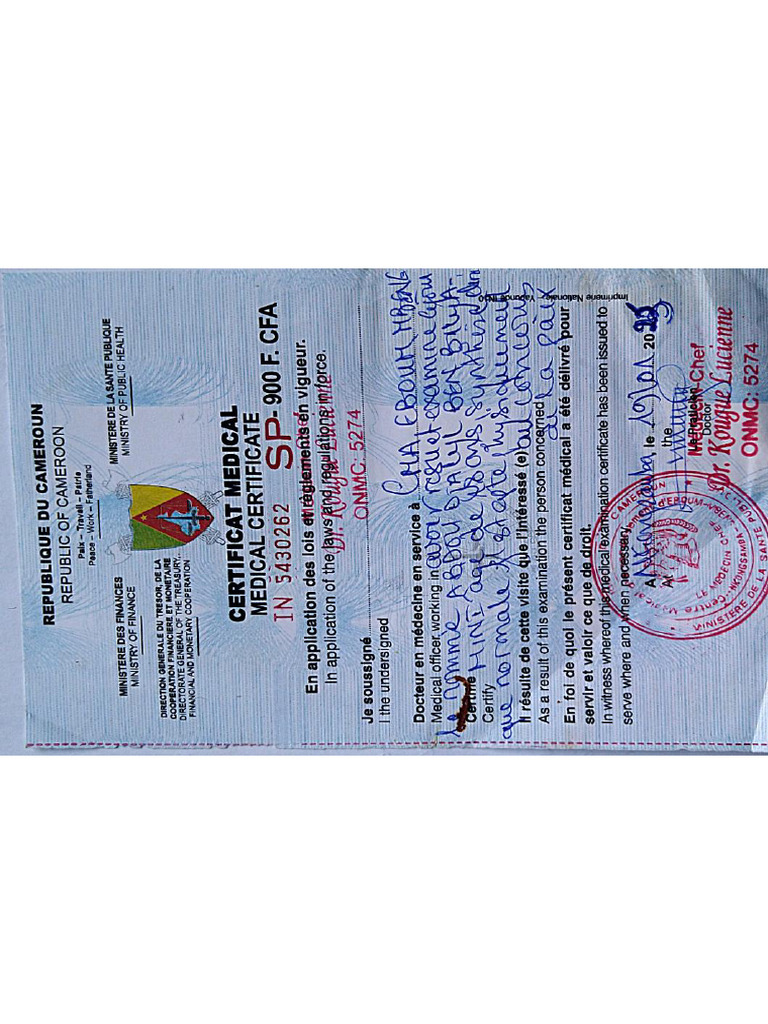 REPUBLIQUE DU CAMEROUN
REPUBLIC OF CAMEROON
Paix - Travail - Patrie
Peace - Work - Fatherland
MINISTERE DES FINANCES
MINISTRY OF FINANCE
DIRECTION GENERALE DU TRESOR, DE LA
COOPERATION FINANCIERE ET MONETAIRE
DIRECTORATE GENERAL OF THE TREASURY,
FINANCIAL AND MONETARY COOPERATION
MINISTERE DE LA SANTE PUBLIQUE
MINISTRY OF PUBLIC HEALTH
CERTIFICAT MEDICAL
MEDICAL CERTIFICATE
IN 5430262 SP - 900 F. CFA
En application des lois et règlements en vigueur.
In application of the laws and regulations in force.
Dr. Kougue Lucienne
ONMC: 5274
Je soussigné
I the undersigned
Docteur en médecine en service à CMA, EBOUM MBENG
Medical officer working in avoir reçu et examiné
le nommé ABBOU DJALYL BEN BAYA-
Certifie
MINI
Certify
que normale physiquement
Il résulte de cette visite que l'intéressé (e)
As a result of this examination the person concerned
de la paix
En foi de quoi le présent certificat médical a été délivré pour
servir et valoir ce que de droit.
In witness whereof the medical examination certificate has been issued to
serve where and when necessary.
A le 19/01 20
At the
Le Praticien
Doctor
Dr. Kougue Lucienne
ONMC: 5274
LE MEDECIN CHEF
MINISTERE DE LA SANTE PUBLIQUE
Imprimerie Nationale